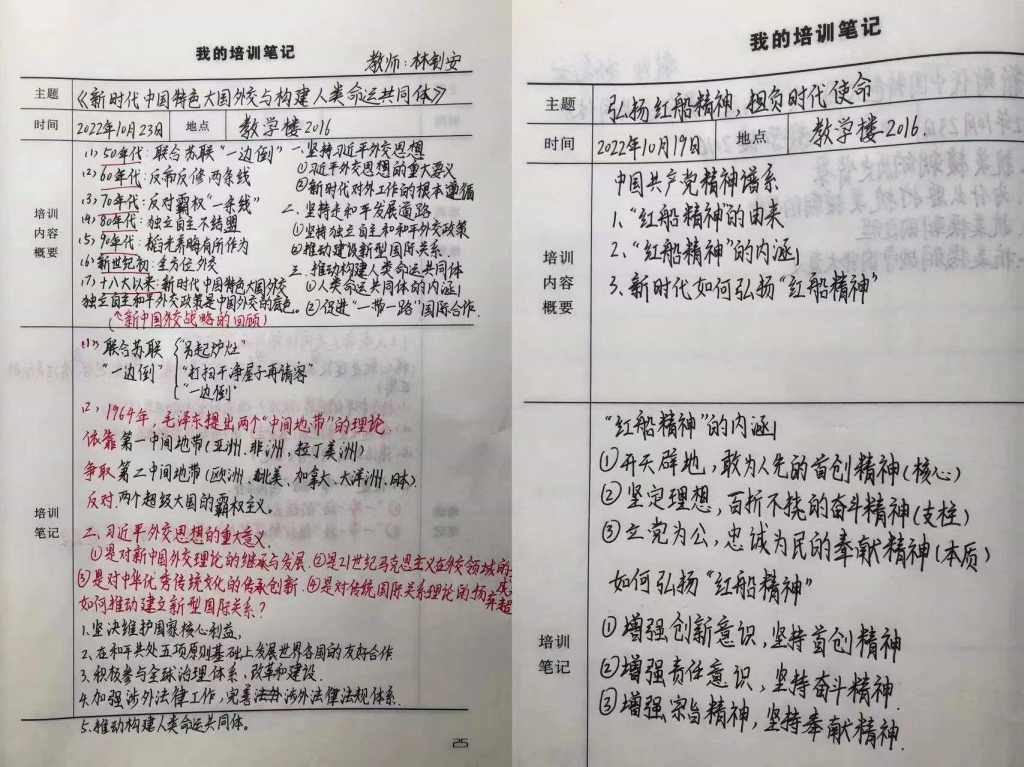 我的培训笔记
教师:林制安
主题 《新时代中国特色大国外交与构建人类命运共同体》
时间 2022年10月23日 地点 教学楼2016
培训内容概要
(1) 50年代:联合苏联“一边倒”
(2) 60年代:反帝反修两条线
(3) 70年代:反对霸权“一条线”
(4) 80年代:独立自主不结盟
(5) 90年代:韬光养晦有所作为
(6) 新世纪初:全方位外交
(7) 十八大以来:新时代中国特色大国外交
独立自主和平外交政策是中国外交的底色。
(新中国外交战略的回顾)
一、坚持习近平外交思想
①习近平外交思想的重大意义
②新时代对外工作的根本遵循
二、坚持走和平发展道路
①坚持独立自主和和平外交政策
②推动建设新型国际关系
三、推动构建人类命运共同体
①人类命运共同体的内涵
②促进“一带一路”国际合作.
培训笔记
(1) 联合苏联“一边倒”
“另起炉灶”
“打扫干净屋子再请客”
“一边倒”
(2) 1964年,毛泽东提出两个“中间地带”的理论.
依靠第一中间地带(亚洲.非洲,拉丁美洲)
争取第二中间地带(欧洲、北美、加拿大、大洋洲、日本).
反对.两个超级大国的霸权主义。
二、习近平外交思想的重大意义.
①是对新中国外交理论的继承与发展.②是21世纪马克思主义在外交领域的
③是对中华优秀传统文化的传承创新.④是对传统国际关系理论的扬弃超
如何推动建立新型国际关系?
1.坚决维护国家核心利益,
2.在和平共处五项原则基础上发展世界各国的友好合作
3.积极参与全球治理体系,改革和建设.
4.加强涉外法律工作,完善涉外法律法规体系.
5.推动构建人类命运共同体。
25
我的培训笔记
主题 弘扬红船精神,担负时代使命
时间 2022年10月19日 地点 教学楼2016.
培训内容概要
中国共产党精神谱系
1、“红船精神”的由来
2、“红船精神”的内涵
3、新时代如何弘扬“红船精神”
培训笔记
“红船精神”的内涵
①开天辟地,敢为人先的首创精神(核心)
②坚定理想,百折不挠的奋斗精神(支柱)
③立党为公,忠诚为民的奉献精神(本质)
如何弘扬“红船精神”
①增强创新意识,坚持首创精神
②增强责任意识,坚持奋斗精神.
③增强宗旨精神,坚持奉献精神.